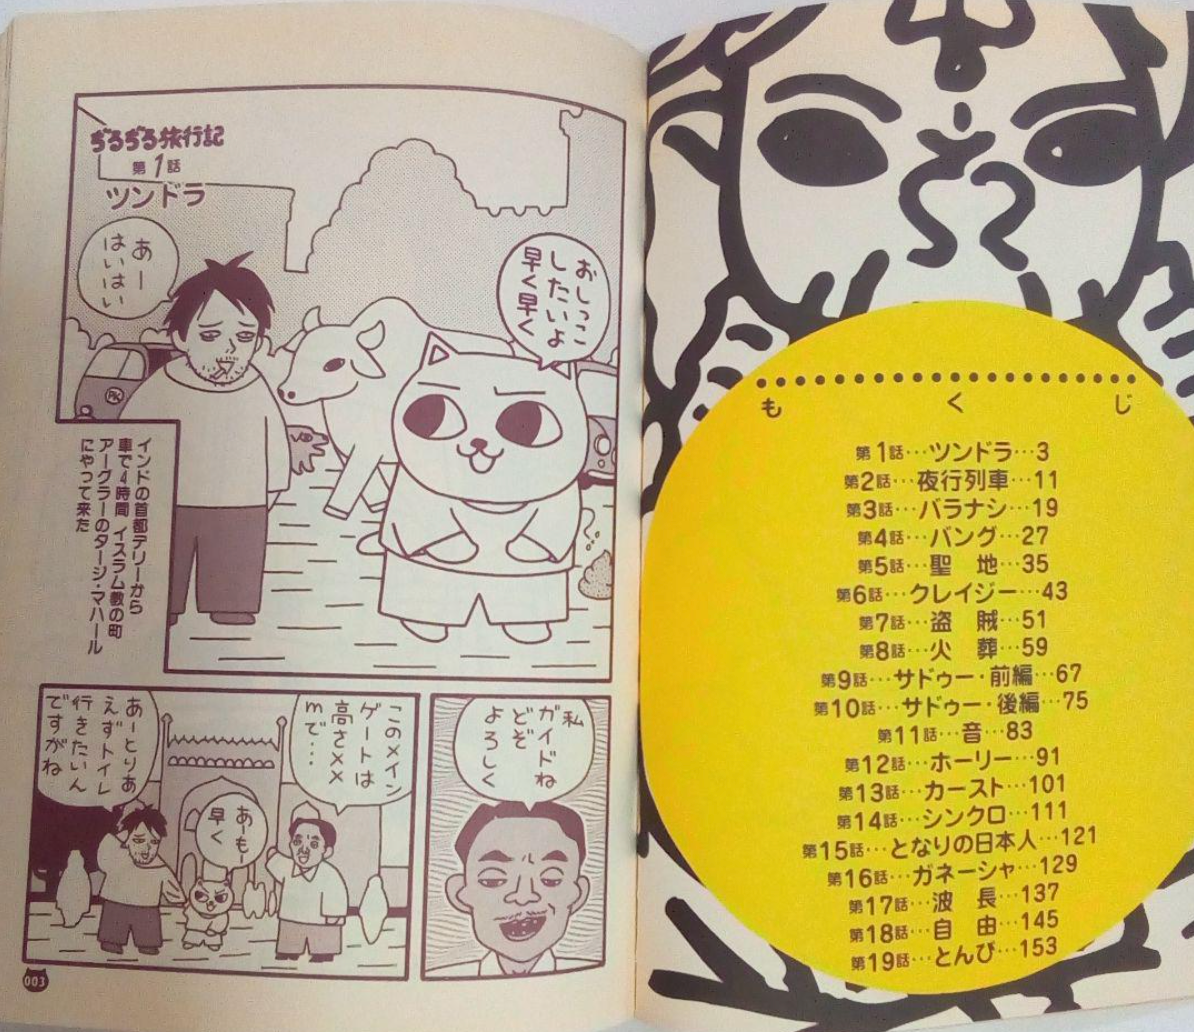 もくじ
第1話…ツンドラ…3
第2話…夜行列車…11
第3話…バラナシ…19
第4話…バング…27
第5話…聖　地…35
第6話…クレイジー…43
第7話…盗　賊…51
第8話…火　葬…59
第9話…サドゥー・前編…67
第10話…サドゥー・後編…75
第11話…音…83
第12話…ホーリー…91
第13話…カースト…101
第14話…シンクロ…111
第15話…となりの日本人…121
第16話…ガネーシャ…129
第17話…波　長…137
第18話…自　由…145
第19話…とんび…153
ぢるぢる旅行記
第1話
ツンドラ
おしっこ
したいよ
早く早く
あー
はいはい
PK
インドの首都デリーから
車で4時間 イスラム教の町
アーグラーのタージ・マハール
にやって来た
私
ガイドね
どぞ
よろしく
このメイン
ゲートは
高さ××
mで…
あーとりあ
えずトイレ
行きたいん
ですがね
あーもー
早く
003